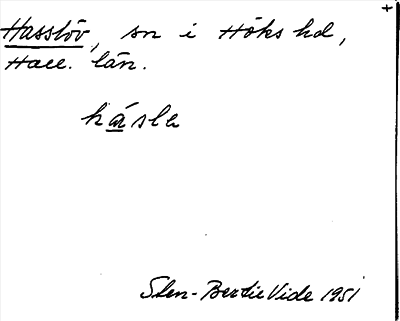 Hasslöv, sn i Höks hd,
Hall. län.
hásle
Sten-Bertil Vide 1951